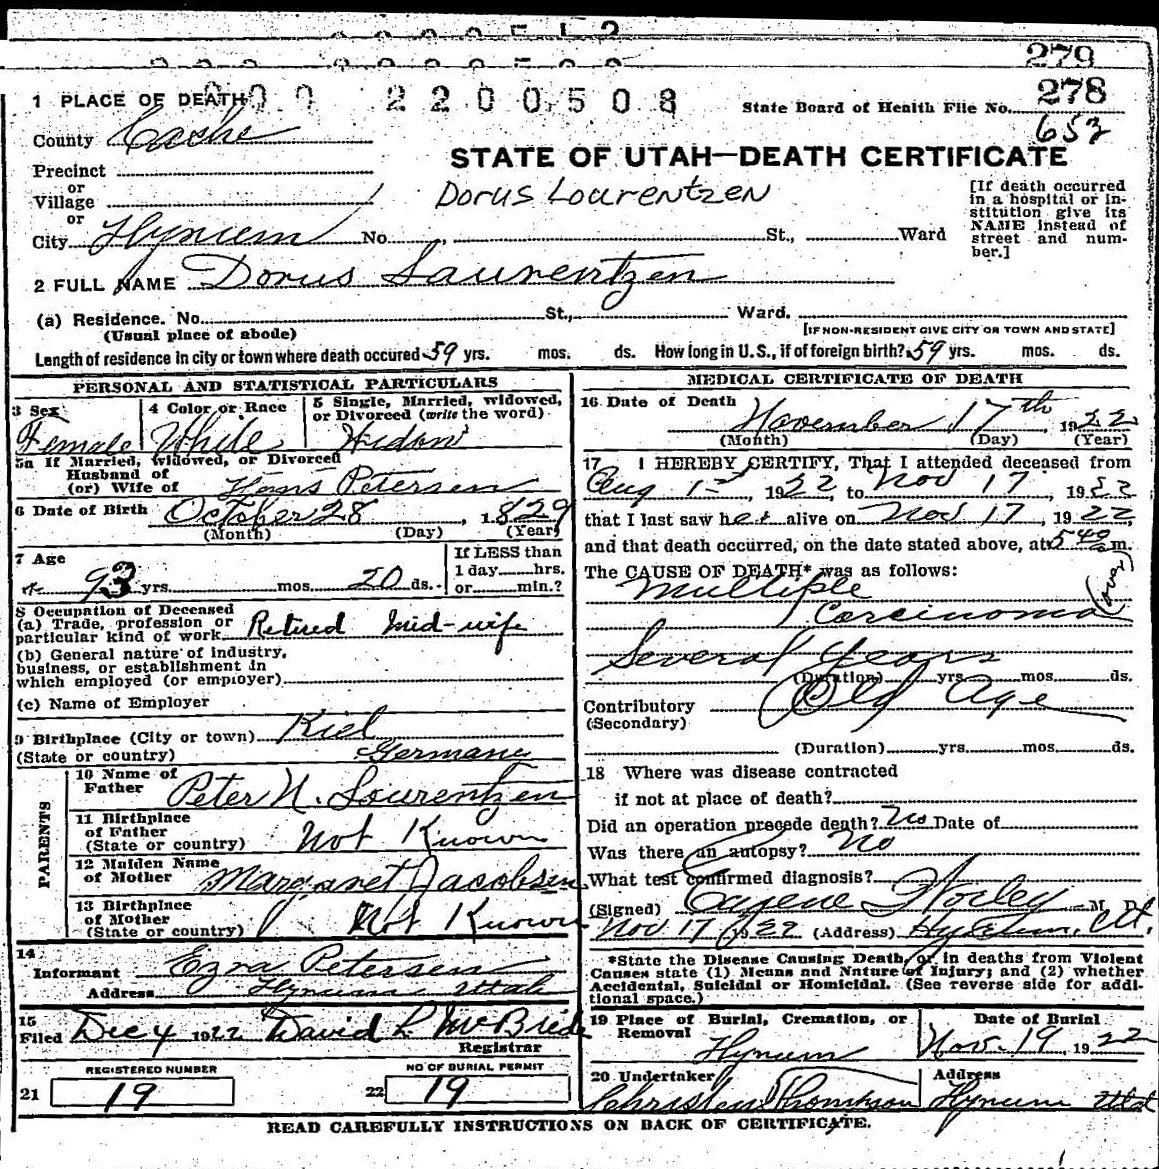 279
278
1 PLACE OF DEATH 2200508 State Board of Health File No.
653
County Cache
STATE OF UTAH—DEATH CERTIFICATE
Precinct
or
Village
Dorus Lourentzen
or
City Hyrum No. St., Ward
[If death occurred in a hospital or institution give its NAME instead of street and number.]
2 FULL NAME Dorus Laurentzen
(a) Residence. No. St., Ward.
(Usual place of abode) [IF NON-RESIDENT GIVE CITY OR TOWN AND STATE]
Length of residence in city or town where death occured 59 yrs. mos. ds. How long in U.S., if of foreign birth? 59 yrs. mos. ds.
PERSONAL AND STATISTICAL PARTICULARS
3 Sex Female
4 Color or Race White
5 Single, Married, widowed, or Divorced (write the word) Widow
5a If Married, widowed, or Divorced
Husband of
(or) Wife of Hans Petersen
6 Date of Birth October 28, 1829
(Month) (Day) (Year)
7 Age
93 yrs. mos. 20 ds.
If LESS than
1 day hrs.
or min.?
8 Occupation of Deceased
(a) Trade, profession or
particular kind of work Retired Mid-wife
(b) General nature of industry,
business, or establishment in
which employed (or employer)
(c) Name of Employer
9 Birthplace (City or town) Kiel
(State or country) Germany
PARENTS
10 Name of
Father Peter N. Lourentzen
11 Birthplace
of Father
(State or country) Not Known
12 Maiden Name
of Mother Margaret Jacobsen
13 Birthplace
of Mother
(State or country) Not Known
14
Informant Ezra Petersen
Address Hyrum Utah
15
Filed Dec 4 1922 David L. McBride
Registrar
REGISTERED NUMBER
21 19
NO OF BURIAL PERMIT
22 19
MEDICAL CERTIFICATE OF DEATH
16 Date of Death
November 17th, 1922
(Month) (Day) (Year)
17 I HEREBY CERTIFY, That I attended deceased from
Aug 1st, 1922, to Nov 17, 1922
that I last saw her alive on Nov 17, 1922,
and that death occurred, on the date stated above, at 5 40 am.
The CAUSE OF DEATH* was as follows:
Multiple
Carcinoma (over)
Several Years
(Duration) yrs. mos. ds.
Contributory Old Age
(Secondary)
(Duration) yrs. mos. ds.
18 Where was disease contracted
if not at place of death?
Did an operation precede death? No Date of
Was there an autopsy? No
What test confirmed diagnosis?
(Signed) Eugene Worley M. D.
Nov 17 1922 (Address) Hyrum, Ut.
*State the Disease Causing Death, or in deaths from Violent
Causes state (1) Means and Nature of Injury; and (2) whether
Accidental, Suicidal or Homicidal. (See reverse side for addi-
tional space.)
19 Place of Burial, Cremation, or
Removal
Hyrum
Date of Burial
Nov. 19, 1922
20 Undertaker
Christen Thompson
Address
Hyrum Utah
READ CAREFULLY INSTRUCTIONS ON BACK OF CERTIFICATE.